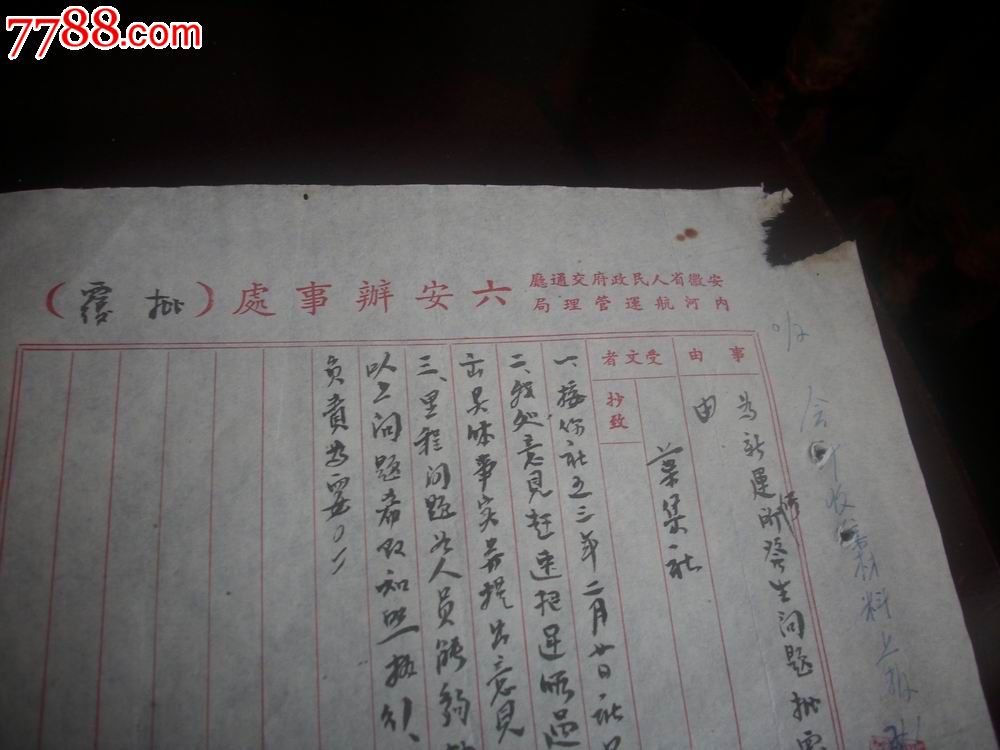 7788.com
安徽省人民政府交通廳
內河航運管理局
六安辦事處（批覆）
事由
為 運所發生問題批
由
受文者
葉集社
抄致
一、接你社五三年二月廿日社
二、我处意見赶速把運
出具体事实并提出意見
三、里程问题 人員能夠
以上问题希即知照执行、
负责为要。
收 材料上报